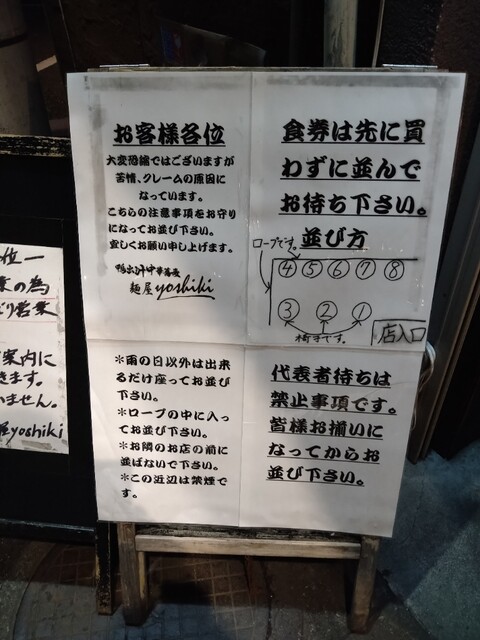 お客様各位
大変恐縮ではございますが
苦情、クレームの原因に
なっています。
こちらの注意事項をお守り
になってお並び下さい。
宜しくお願い申し上げます。
鴨出汁中華蕎麦
麺屋yoshiki
食券は先に買
わずに並んで
お待ち下さい。
並び方
ロープです。
④⑤⑥⑦⑧
③②①
椅子です。
店入口
*雨の日以外は出来
るだけ座ってお並び
下さい。
*ロープの中に入っ
てお並び下さい。
*お隣のお店の前に
並ばないで下さい。
*この近辺は禁煙で
す。
代表者待ちは
禁止事項です。
皆様お揃いに
なってからお
並び下さい。
位一
業の為
どり営業
案内に
きます。
いません。
屋yoshiki